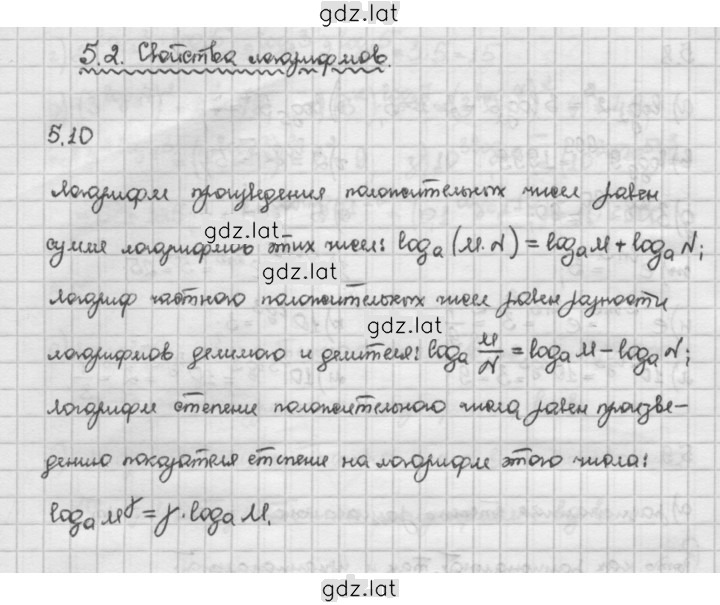 gdz.lat
5.2. Свойства логарифмов.
5.10
Логарифм произведения положительных чисел равен
gdz.lat
сумме логарифмов этих чисел: logₐ(M·N) = logₐM + logₐN;
gdz.lat
логариф частного положительных чисел равен разности
gdz.lat
логарифмов делимого и делителя: logₐ M/N = logₐM − logₐN;
логарифм степени положительного числа равен произве-
дению показателя степени на логарифм этого числа:
logₐM^γ = γ·logₐM.
gdz.lat